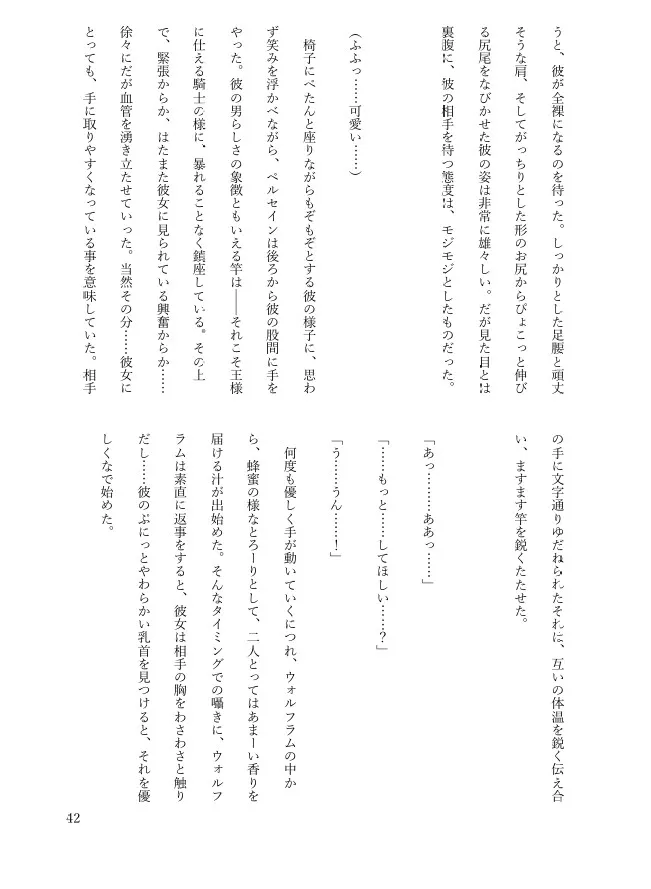 うと、彼が全裸になるのを待った。しっかりとした足腰と頑丈
そうな肩、そしてがっちりとした形のお尻からぴょこっと伸び
る尻尾をなびかせた彼の姿は非常に雄々しい。だが見た目とは
裏腹に、彼の相手を待つ態度は、モジモジとしたものだった。
(ふふっ……可愛い……)
椅子にぺたんと座りながらもぞもぞとする彼の様子に、思わ
ず笑みを浮かべながら、ペルセインは後ろから彼の股間に手を
やった。彼の男らしさの象徴ともいえる竿は――それこそ王様
に仕える騎士の様に、暴れることなく鎮座している。その上
で、緊張からか、はたまた彼女に見られている興奮からか……
徐々にだが血管を湧き立たせていった。当然その分……彼女に
とっても、手に取りやすくなっている事を意味していた。相手
の手に文字通りゆだねられたそれに、互いの体温を鋭く伝え合
い、ますます竿を鋭くたたせた。
「あっ………ああっ……」
「……もっと……してほしい……?」
「う……うん……!」
何度も優しく手が動いていくにつれ、ウォルフラムの中か
ら、蜂蜜の様なとろーりとして、二人とってはあまーい香りを
届ける汁が出始めた。そんなタイミングでの囁きに、ウォルフ
ラムは素直に返事をすると、彼女は相手の胸をわさわさと触り
だし……彼のぷにっとやわらかい乳首を見つけると、それを優
しくなで始めた。
42